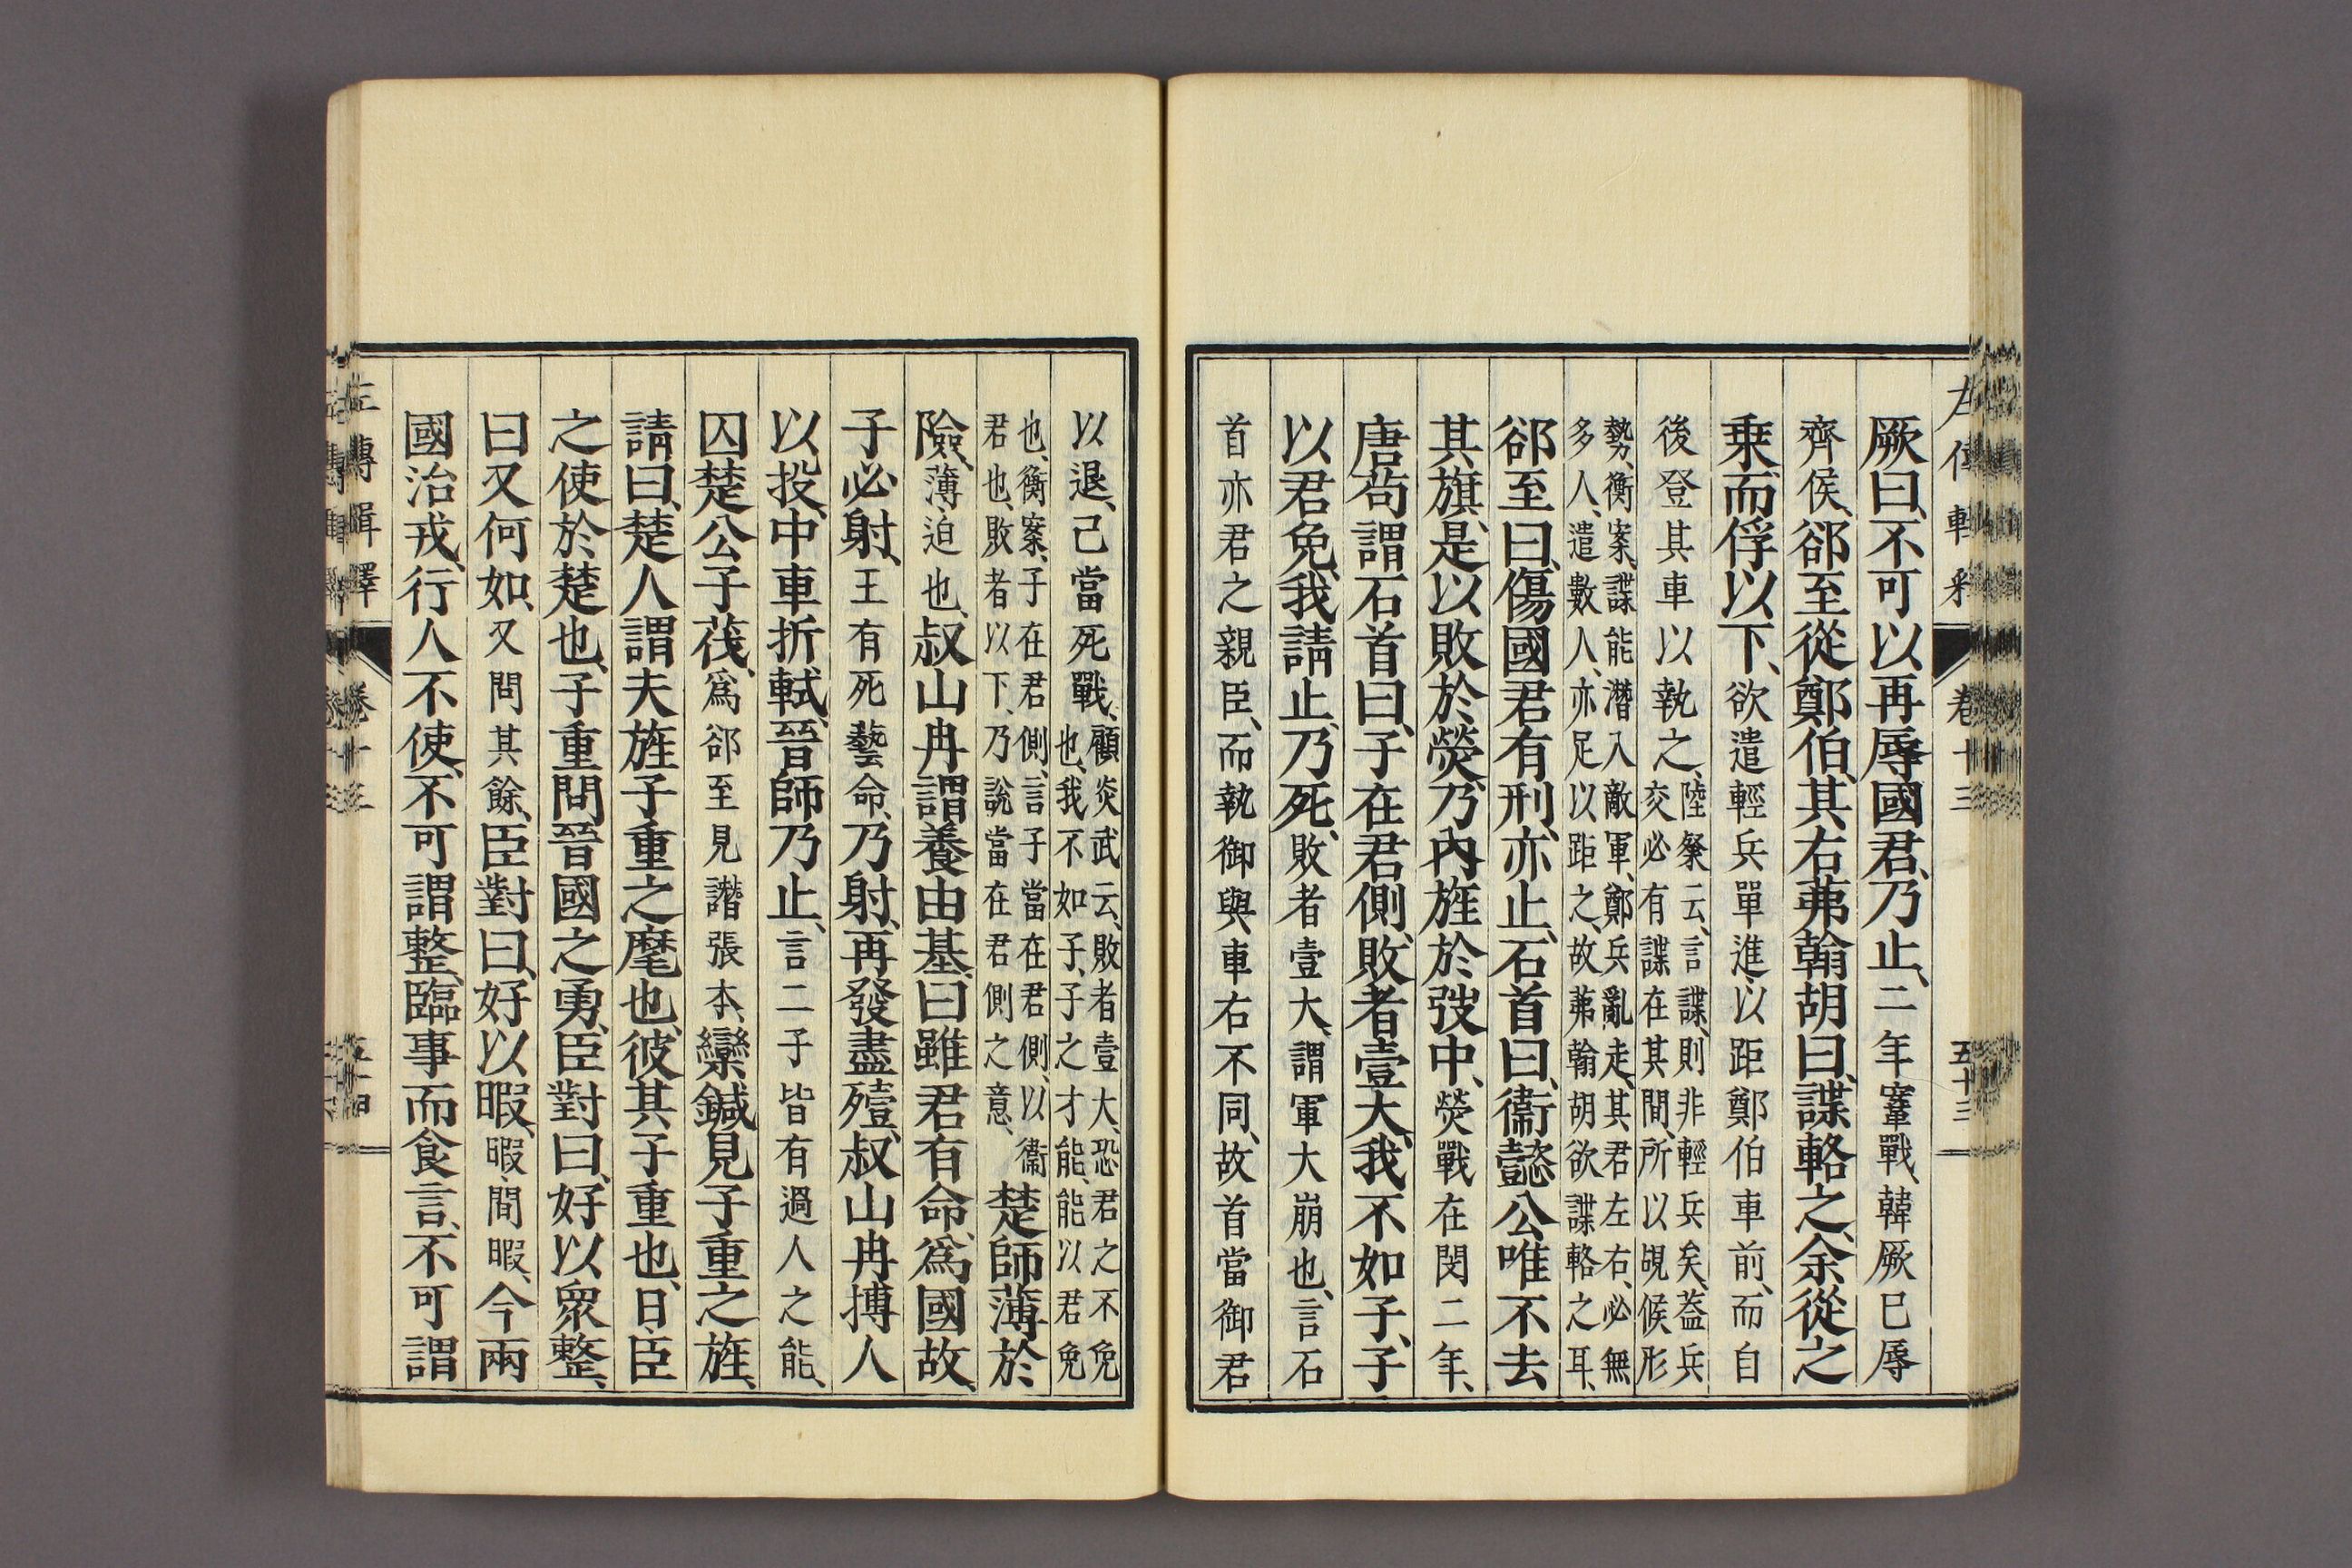 左傳輯釋 卷十三 五十三
厥曰、不可以再辱國君、乃止、二年鞌戰、韓厥已辱
齊侯、郤至從鄭伯、其右茀翰胡曰、諜輅之、余從之
乘、而俘以下、欲遣輕兵單進、以距鄭伯車前、而自
後登其車以執之、陸粲云、言諜、則非輕兵矣、蓋兵
交必有諜在其間、所以覘候形
勢、衡案、諜能潛入敵軍、鄭兵亂走、其君左右、必無
多人、遣數人、亦足以距之、故茀翰胡欲諜輅之耳、
郤至曰、傷國君有刑、亦止、石首曰、衞懿公唯不去
其旗、是以敗於熒、乃內旌於弢中、熒戰在閔二年、
唐苟謂石首曰、子在君側、敗者壹大、我不如子、子
以君免、我請止、乃死、敗者壹大、謂軍大崩也、言石
首亦君之親臣、而執御與車右不同、故首當御君
以退、己當死戰、顧炎武云、敗者壹大、恐君之不免
也、我不如子、子之才能、能以君免
也、衡案、子在君側、言子當在君側、以衞
君也、敗者以下、乃說當在君側之意、楚師薄於
險、薄、迫也、叔山冉謂養由基、曰雖君有命、爲國故、
子必射、王有死藝命、乃射、再發盡殪、叔山冉搏人
以投、中車折軾、晉師乃止、言二子皆有過人之能、
囚楚公子茷、爲郤至見譖張本、欒鍼見子重之旌、
請曰、楚人謂夫旌子重之麾也、彼其子重也、日、臣
之使於楚也、子重問晉國之勇、臣對曰、好以眾整、
曰又何如、又問其餘、臣對曰、好以暇、暇、間暇、今兩
國治戎、行人不使、不可謂整、臨事而食言、不可謂
左傳輯釋 卷十三